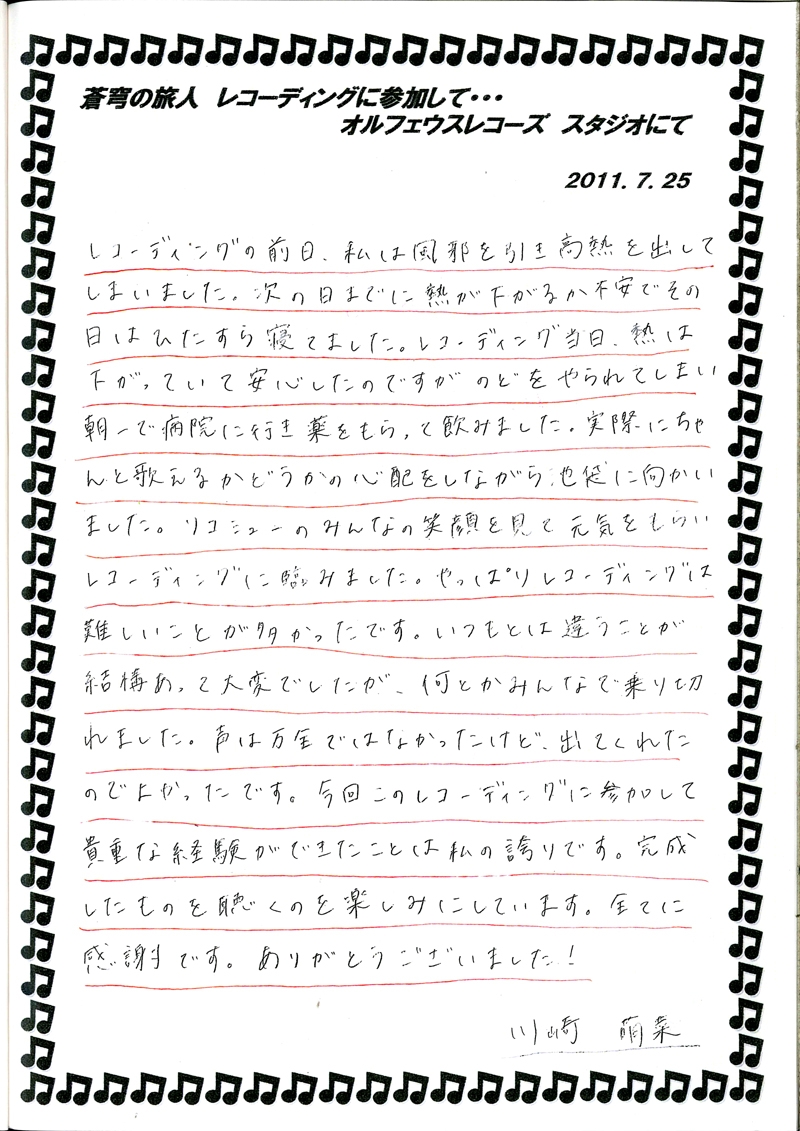 蒼穹の旅人 レコーディングに参加して・・・
オルフェウスレコーズ スタジオにて
2011.7.25
レコーディングの前日、私は風邪を引き高熱を出して
しまいました。次の日までに熱が下がるか不安でその
日はひたすら寝てました。レコーディング当日、熱は
下がっていて安心したのですがのどをやられてしまい
朝一で病院に行き薬をもらって飲みました。実際にちゃ
んと歌えるかどうかの心配をしながら池袋に向かい
ました。リコミューのみんなの笑顔を見て元気をもらい
レコーディングに臨みました。やっぱりレコーディングは
難しいことが多かったです。いつもとは違うことが
結構あって大変でしたが、何とかみんなで乗り切
れました。声は万全ではなかったけど、出てくれた
のでよかったです。今回このレコーディングに参加して
貴重な経験ができたことは私の誇りです。完成
したものを聴くのを楽しみにしています。全てに
感謝です。ありがとうございました！
川崎 萌菜